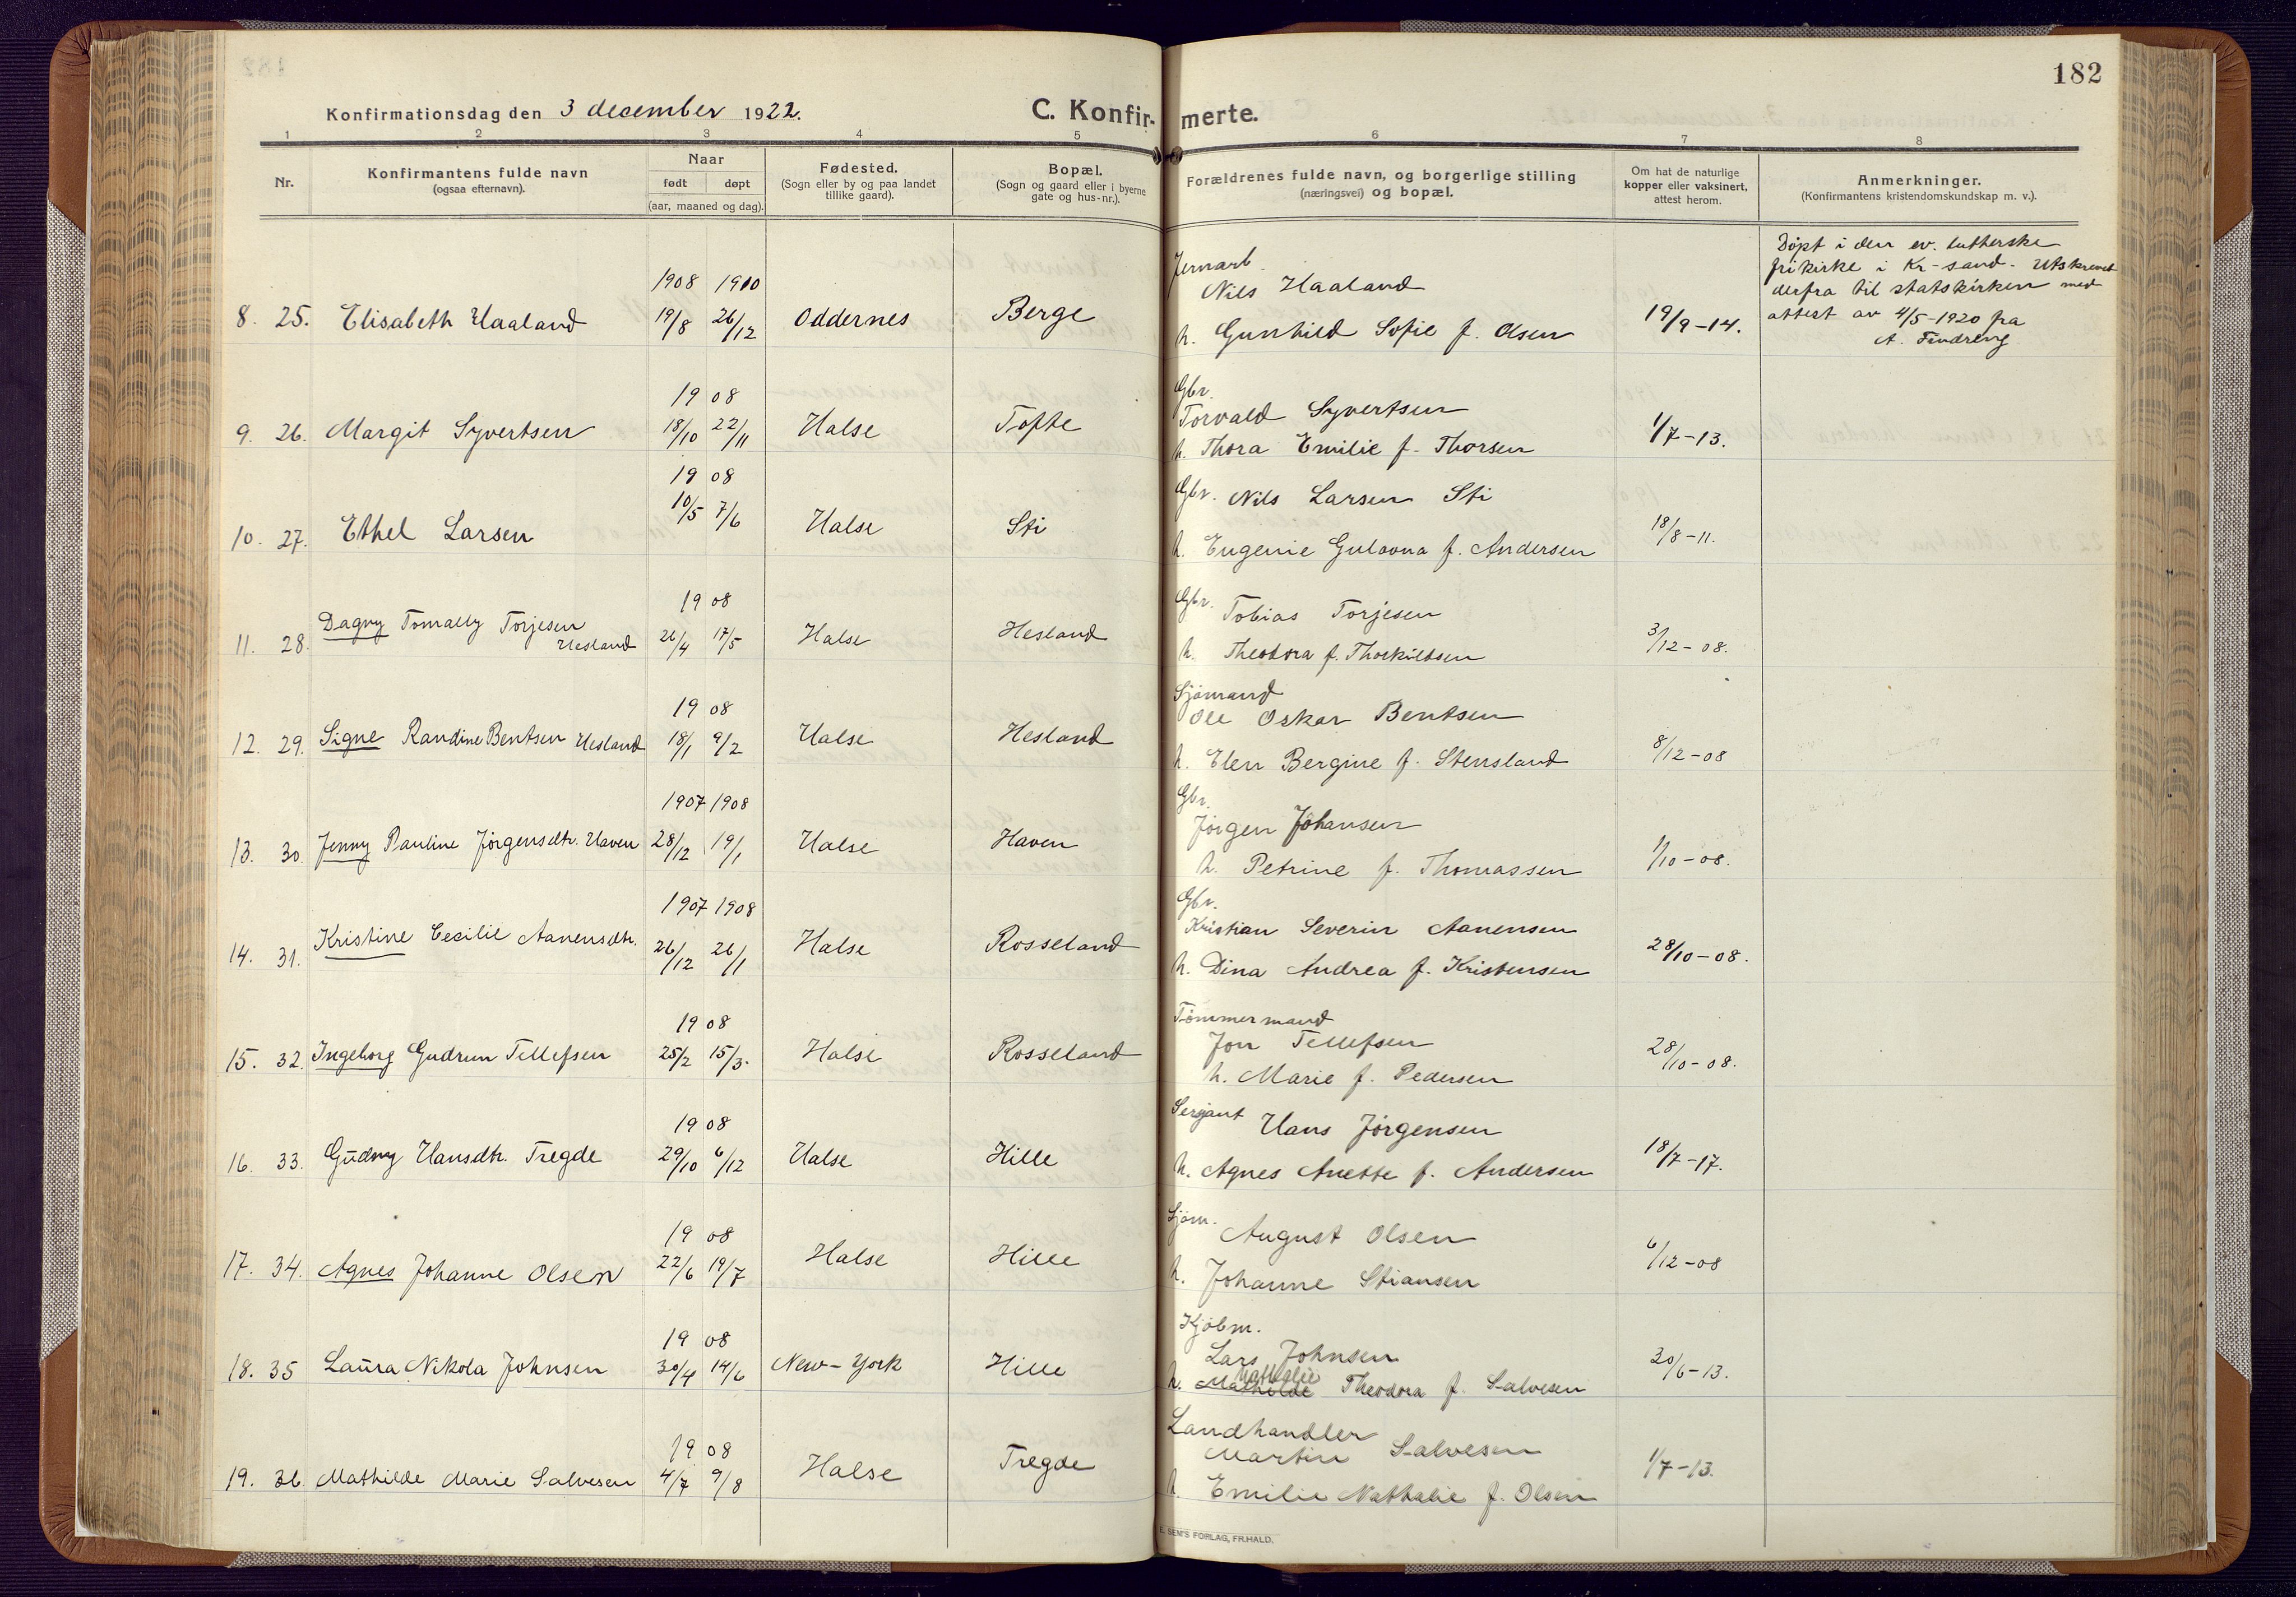 182
Konfirmationsdag den 3 december 1922.
C. Konfir- merte.
1 2 3 4 5 6 7 8
Nr.
Konfirmantens fulde navn
(ogsaa efternavn).
Naar
født døpt
(aar, maaned og dag).
Fødested.
(Sogn eller by og paa landet
tillike gaard).
Bopæl.
(Sogn og gaard eller i byerne
gate og hus-nr.).
Forældrenes fulde navn, og borgerlige stilling
(næringsvei) og bopæl.
Om hat de naturlige
kopper eller vaksinert,
attest herom.
Anmerkninger.
(Konfirmantens kristendomskundskap m. v.).
1908 1910
8. 25. Elisabeth Haaland 19/8 26/12 Oddernes Berge
Jernarb.
Nils Haaland
h. Gunhild Sofie f. Olsen
19/9-14.
Døpt i den ev. lutherske
frikirke i Kr-sand. Utskrevet
derfra til statskirken med
attest av 4/5-1920 fra
A. Tindreng
19 08
9. 26. Margit Syvertsen 18/10 22/11 Halse Tofte
Gbr.
Torvald Syvertsen
h. Thora Emilie f. Thorsen
1/7-13.
19 08
10. 27. Ethel Larsen 10/5 7/6 Halse Sti
Gbr. Nils Larsen Sti
h. Eugenie Gulovna f. Andersen
18/8-11.
19 08
11. 28. Dagny Tomally Torjesen
Hesland 26/4 17/5 Halse Hesland
Gbr. Tobias Torjesen
h. Theodora f. Thorkildsen
3/12-08.
19 08
12. 29. Signe Randine Bentsen Hesland 18/1 9/2 Halse Hesland
Sjømand
Ole Oskar Bentsen
h. Elen Bergine f. Stensland
8/12-08
1907 1908
13. 30. Jenny Pauline Jørgensdtr. Haven 28/12 19/1 Halse Haven
Gbr.
Jørgen Johansen
h. Petrine f. Thomassen
1/10-08.
1907 1908
14. 31. Kristine Cecilie Aanensdtr. 26/12 26/1 Halse Rosseland
Gbr.
Kristian Severin Aanensen
h. Dina Andrea f. Kristensen
28/10-08.
19 08
15. 32. Ingeborg Gudrun Tellefsen 25/2 15/3. Halse Rosseland
Tømmermand
Jon Tellefsen
h. Marie f. Pedersen
28/10-08.
19 08
16. 33. Gudny Hansdtr. Tregde 29/10 6/12 Halse Hille
Sergant Hans Jørgensen
h. Agnes Anette f. Andersen
18/7-17.
19 08
17. 34. Agnes Johanne Olsen 22/6 19/7 Halse Hille
Sjøm. August Olsen
h. Johanne Stiansen
6/12-08
19 08
18. 35 Laura Nikola Johnsen 30/4 14/6 New-York Hille
Kjøbm.
Lars Johnsen
Nathalie
h. Mathilde Theodora f. Salvesen
20/6-13.
19 08
19. 36. Mathilde Marie Salvesen 4/7 9/8 Halse Tregde
Landhandler
Martin Salvesen
h. Emilie Nathalie f. Olsen
1/7-13.
E. SEM'S FORLAG, FR.HALD.